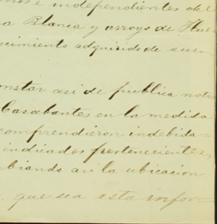 e independientes de l
a Blanca y arroyo de
cimiento adquirido de
onstar asi de publica not
Casabantes en la medida
comprendieron indebida
indicados pertenecientes,
biando asi la ubicacion
que sea esta infor